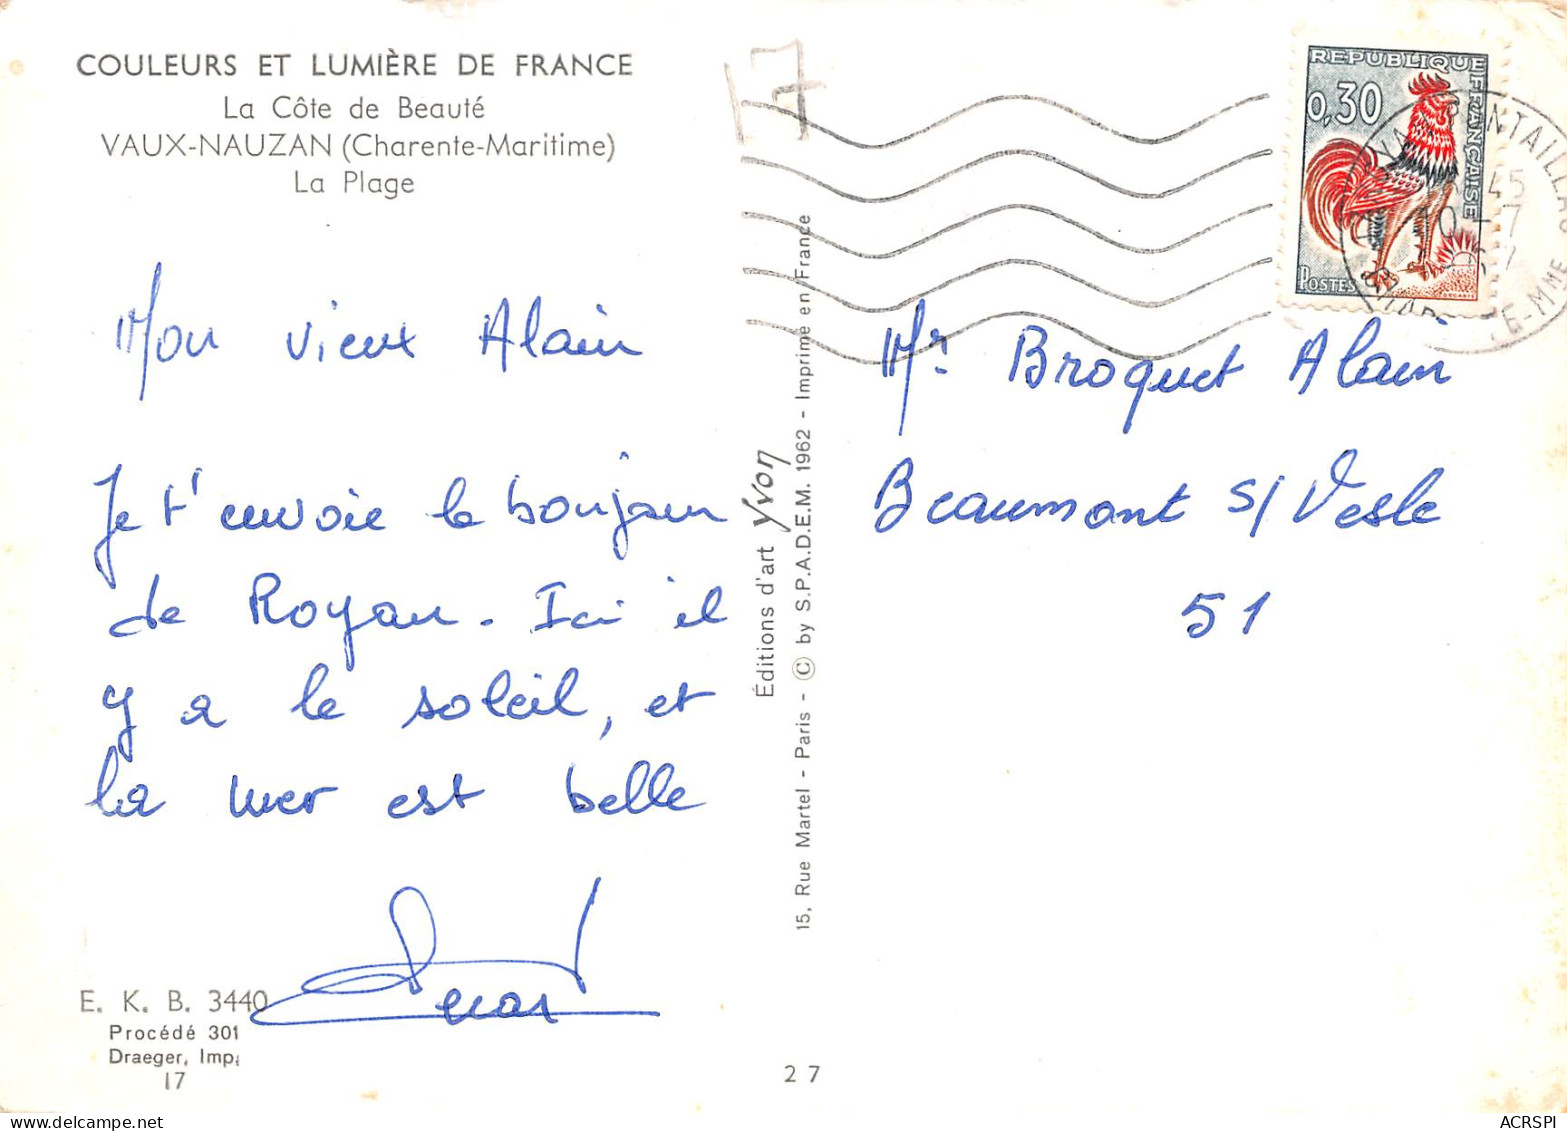 COULEURS ET LUMIÈRE DE FRANCE
La Côte de Beauté
VAUX-NAUZAN (Charente-Maritime)
La Plage
17
REPUBLIQUE FRANÇAISE
0,30
POSTES
45
10-7
Mon vieux Alain
Je t'envoie le bonjour
de Royan. Ici il
y a le soleil, et
la mer est belle
E. K. B. 3440
Procédé 301
Draeger, Imp.
17
Éditions d'art Yvon
15, Rue Martel - Paris - © by S.P.A.D.E.M. 1962 - Imprimé en France
Mr Broquet Alain
Beaumont s/ Vesle
51
27
ACRSPI